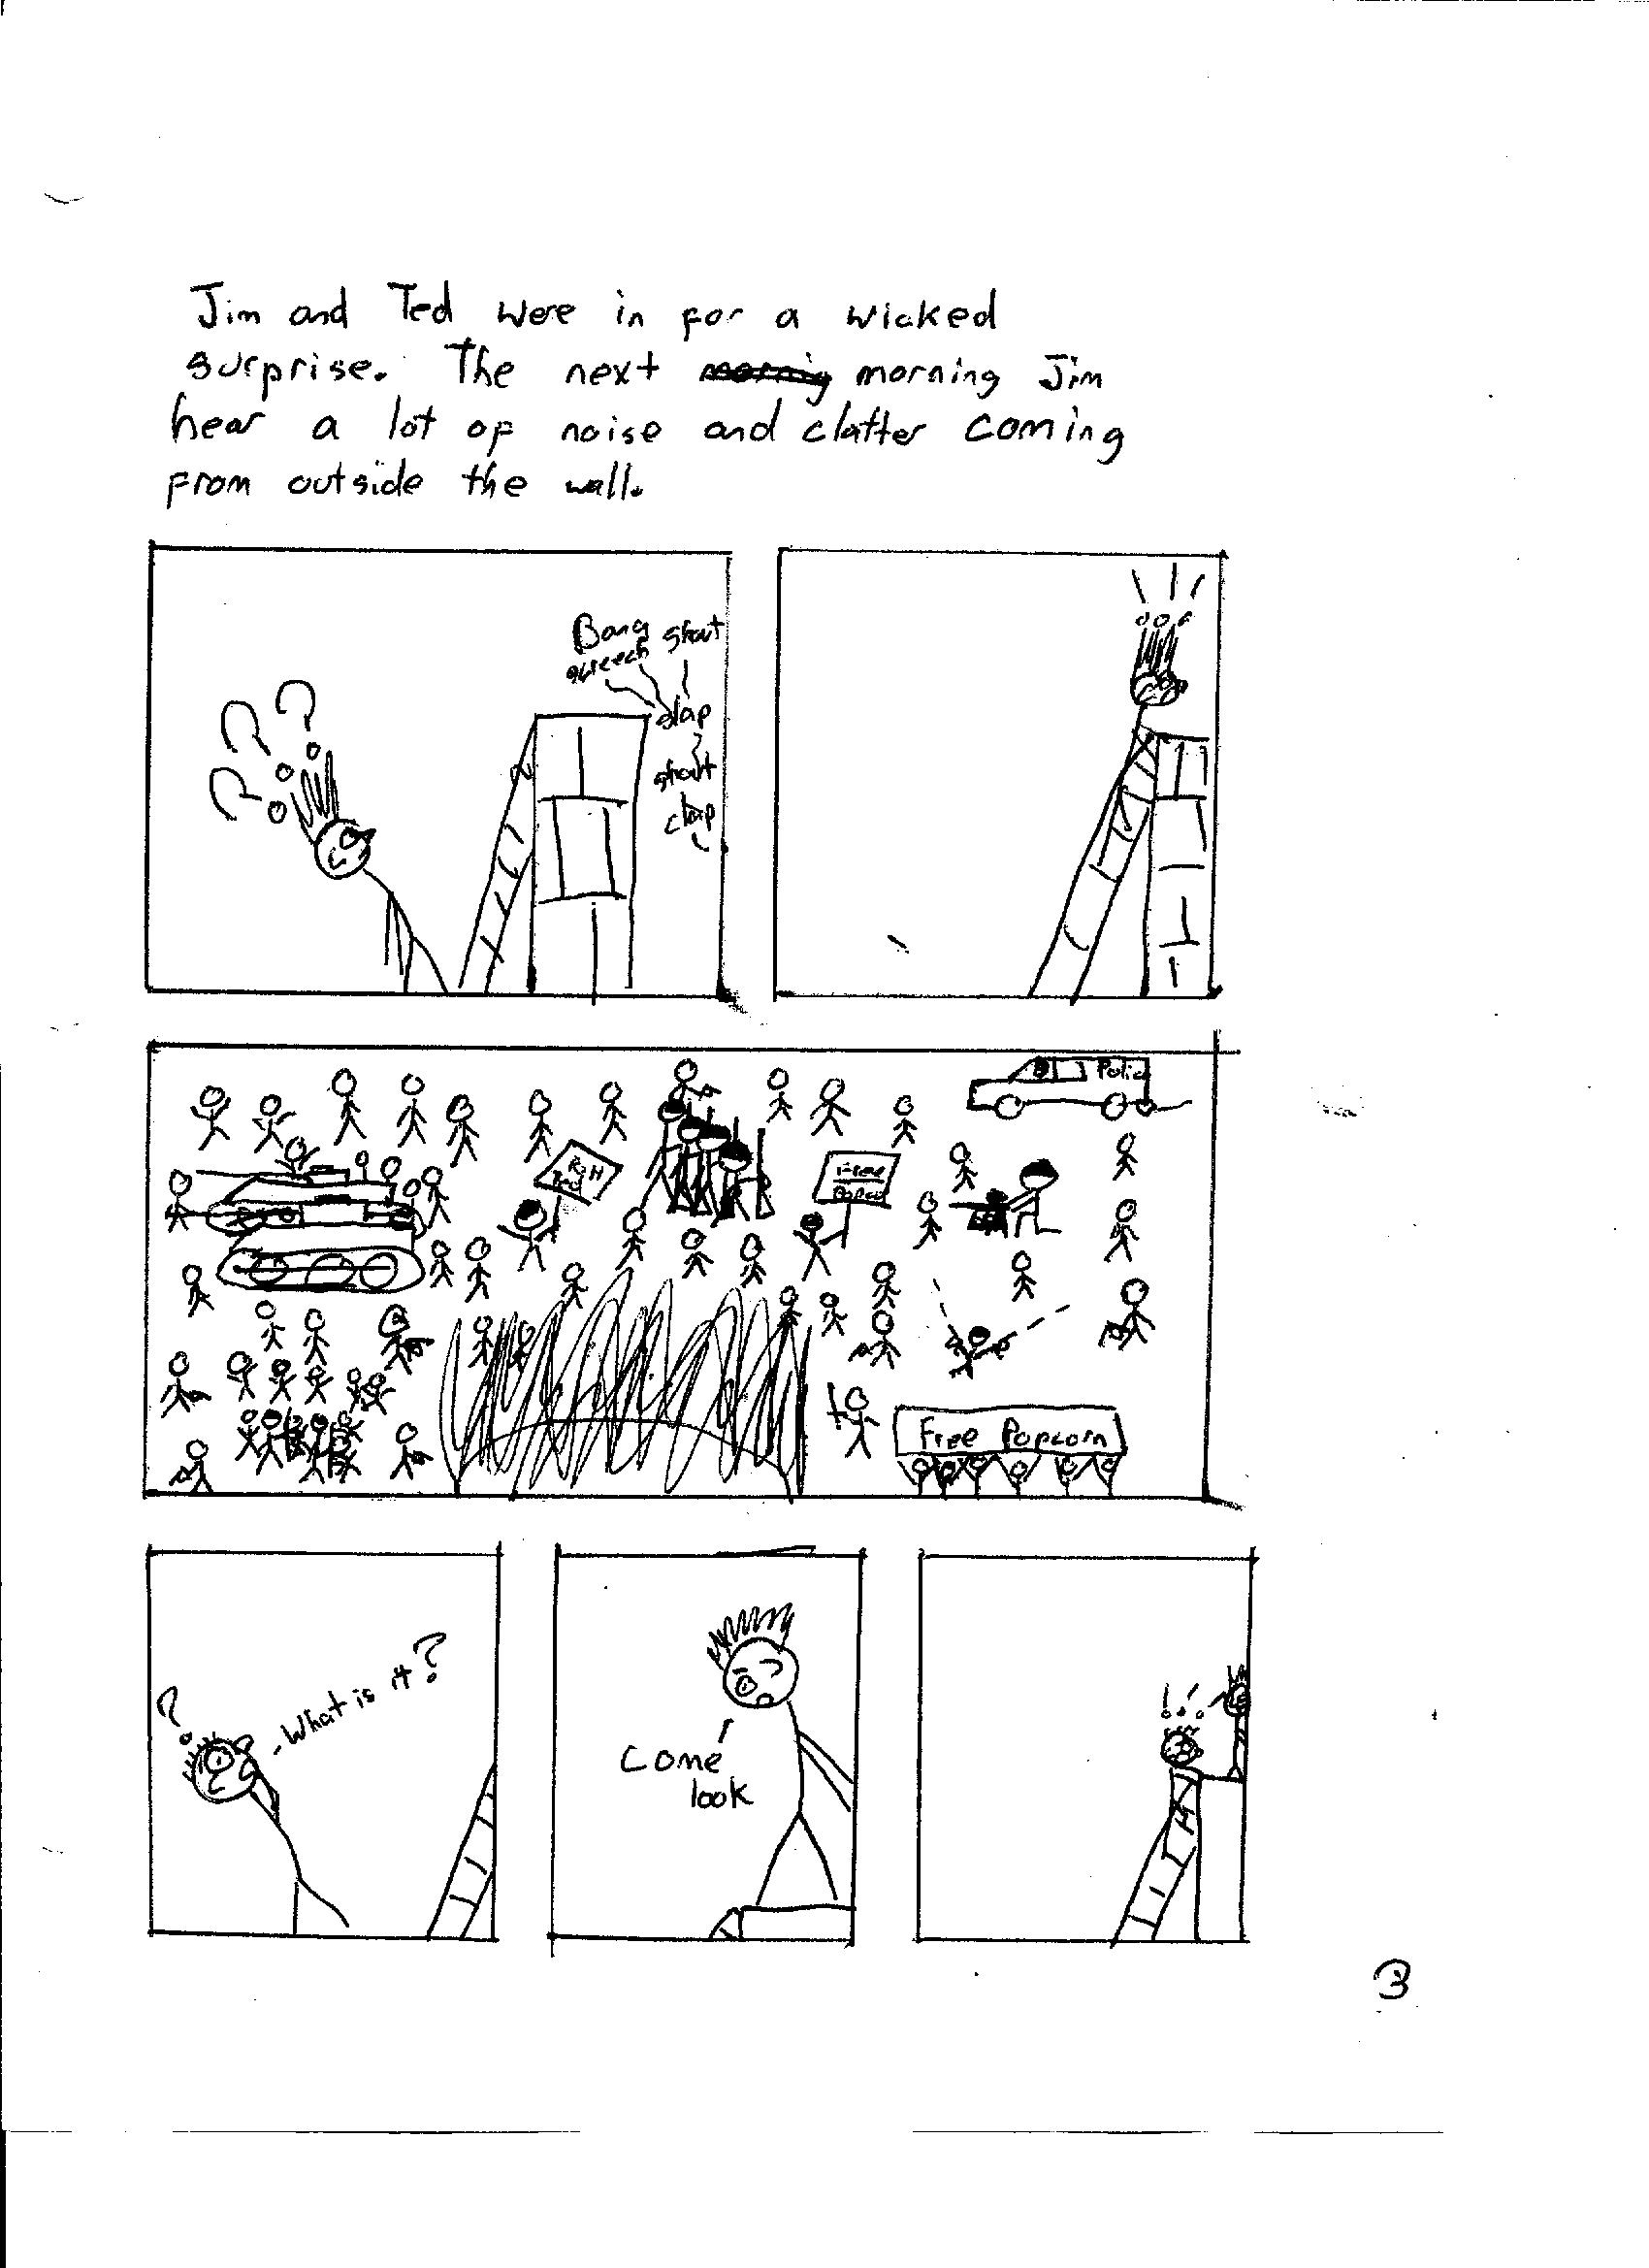 Jim and Ted were in for a wicked
surprise. The next morning Jim
hear a lot of noise and clatter coming
from outside the wall.
Bang shout
screech
slap
shout
clap
Police
Free
Free Popcorn
? What is it?
Come
look
!!!
3